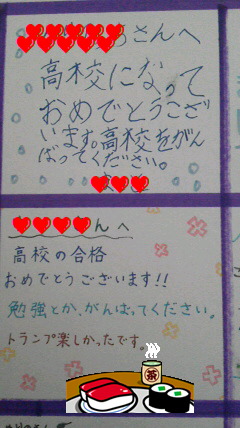 さんへ
高校になって
おめでとうござ
います。高校をがん
ばってください。
んへ
高校の合格
おめでとうございます!!
勉強とか、がんばってください。
トランプ楽しかったです。
茶